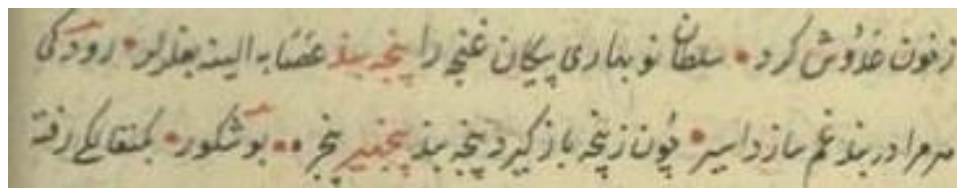 ز خون غذوش کرد • سلطان نوبهاری پیکان غنچه را پنجه بند عصابه الینه بغلرلر • رودکی
مر مرا در بند غم سازد اسیر • چون ز پنجه باز گیرد پنجه بند پنجیر پنجره • بوشکور • رفته